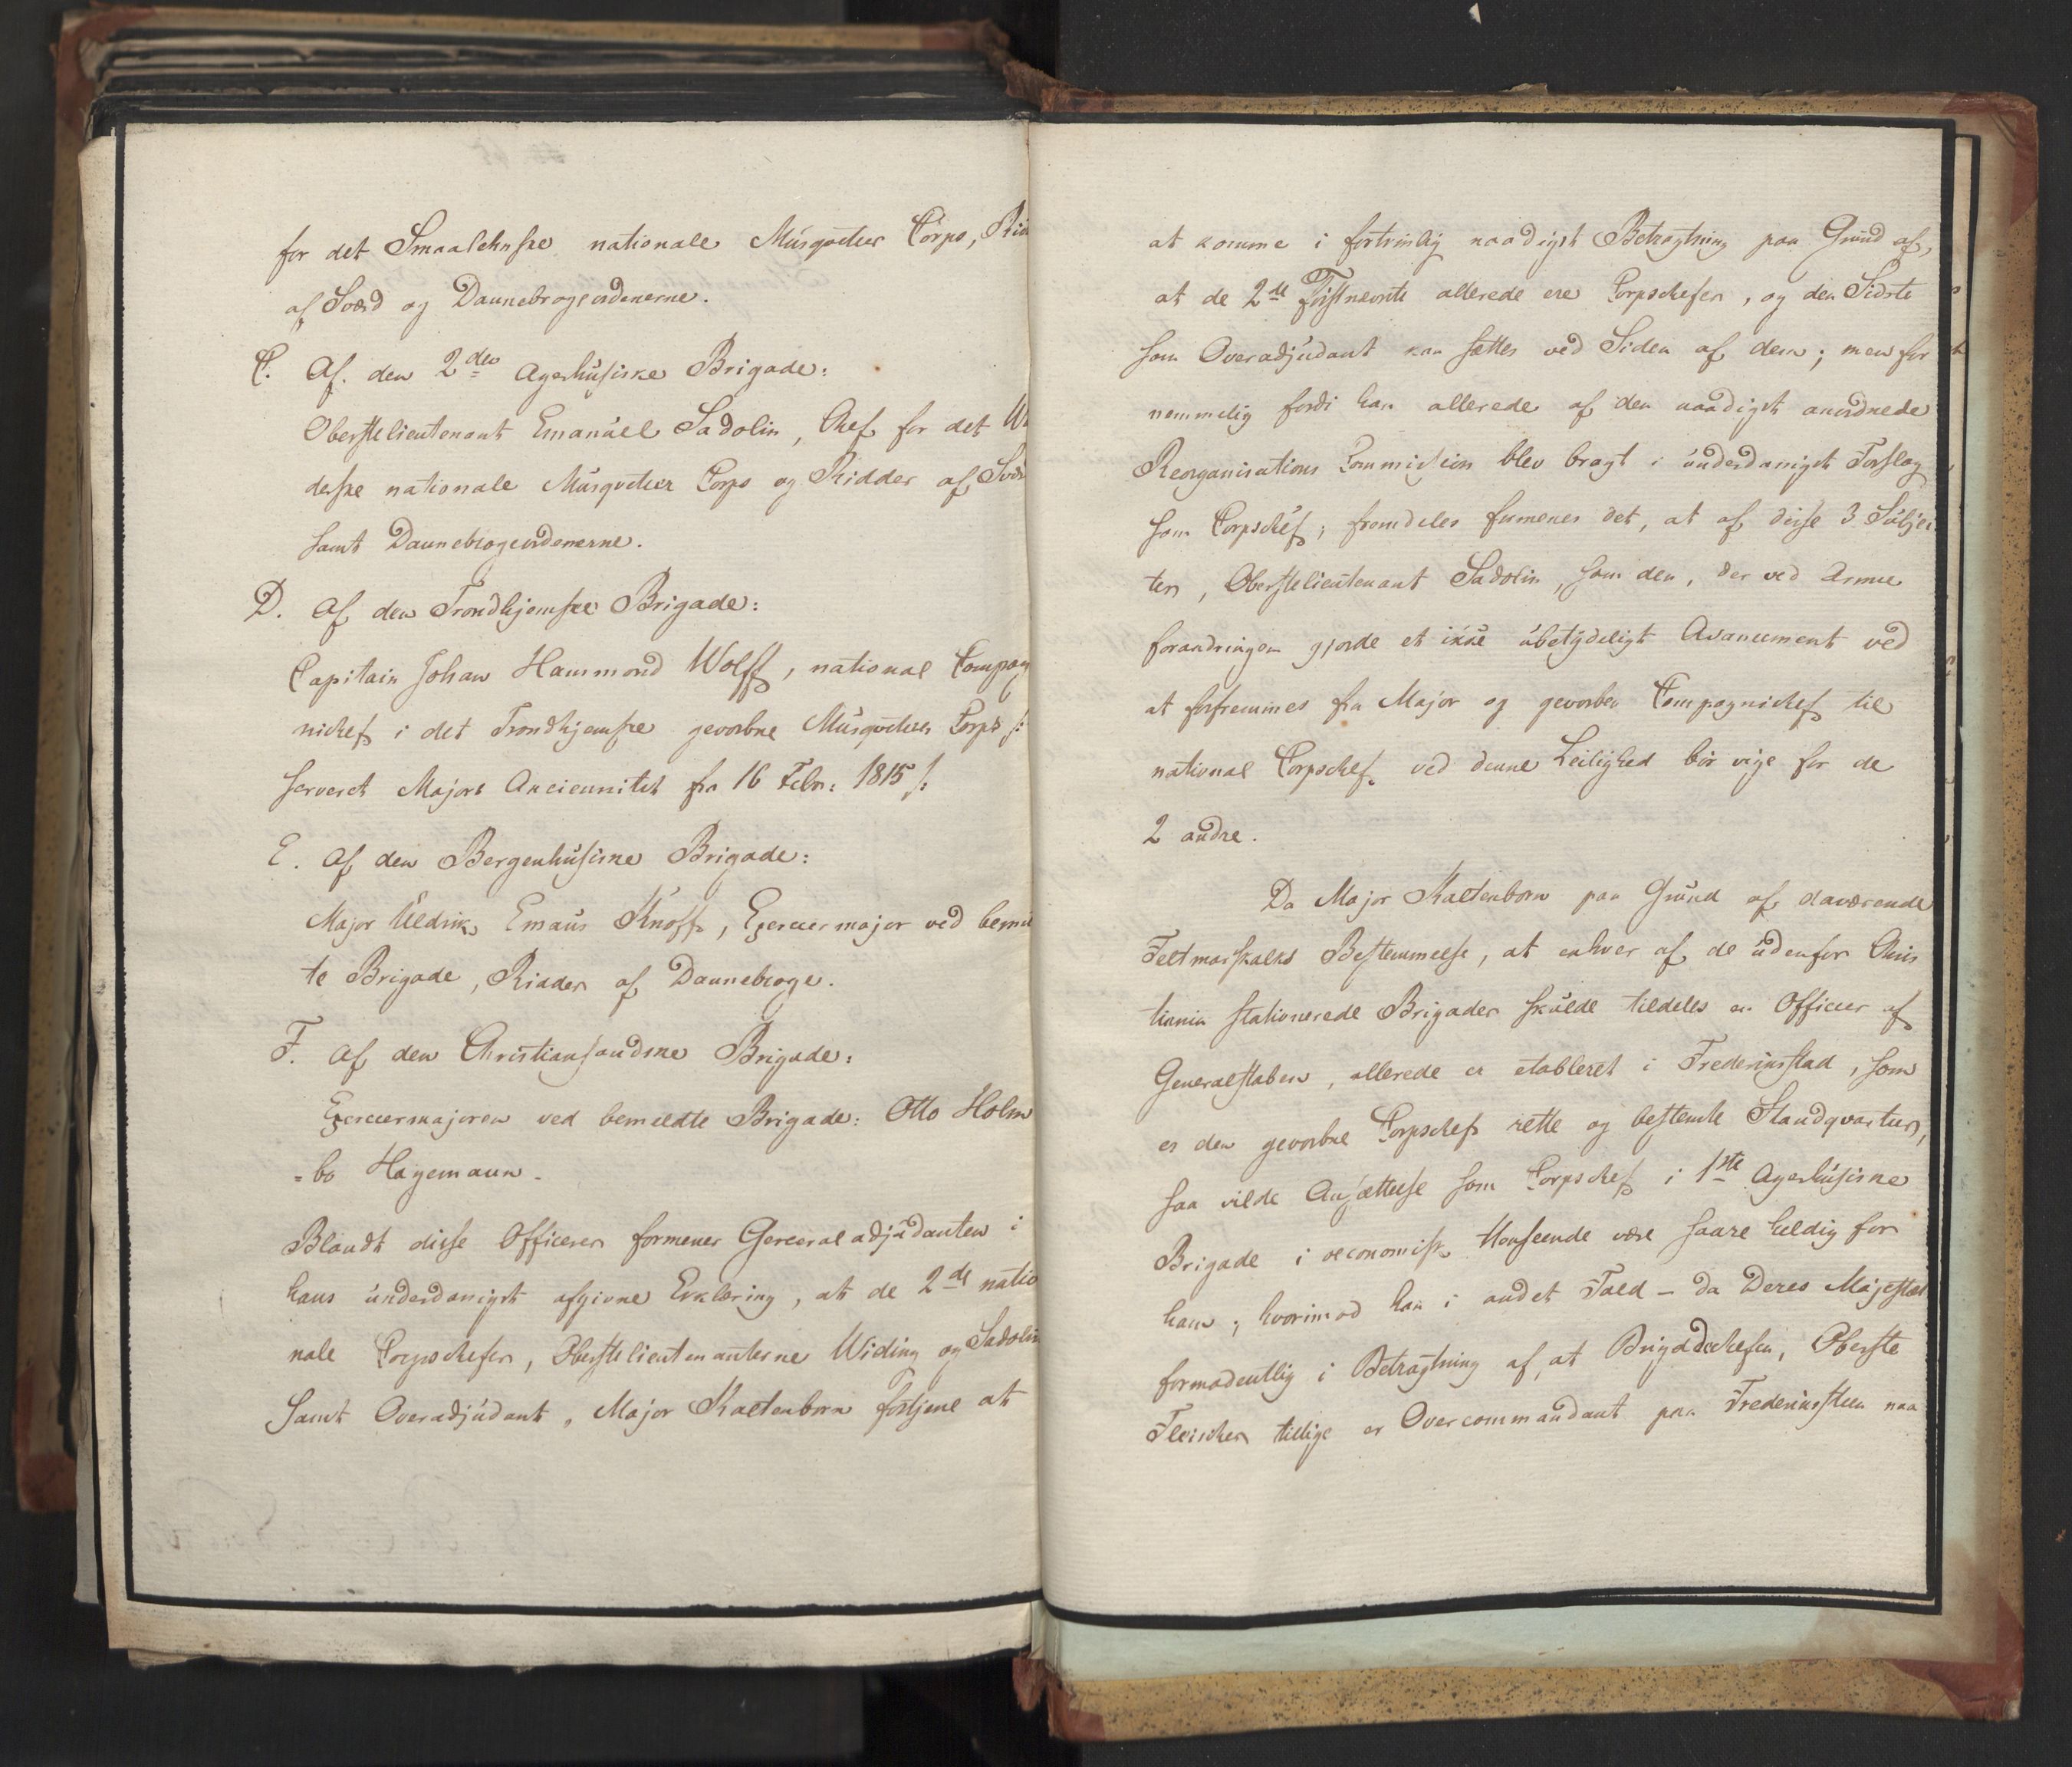 for det Smaalehnske nationale Musqveteer Corps, Rid
af Sværd og Dannebrogeordenerne.
C. Af den 2den Agerhusiske Brigade:
Oberstlieutenant Emanuel Sadolin, Chef for det
derske nationale Musqveteer Corps og Ridder af Svær
samt Dannebrogeordenerne.
D. Af den Trondhjemske Brigade:
Capitain Johan Hammond Wolff, national Compag
nichef i det Trondhjemske gevorbne Musqveteer Corps /:
serveret Majors Anciennitet fra 16 Febr: 1815 /:
E. Af den Bergenhusiske Brigade:
Major Uldrik Emaus Knoff, Exerceermajor ved bemel
te Brigade, Ridder af Dannebroge.
F. Af den Christiansandske Brigade:
Exerceermajoren ved bemeldte Brigade: Otto Holm
=bo Hagemann.
Blandt disse Officerer formener Generaladjudanten i
hans underdanigst afgivne Erklæring, at de 2de natio
nale Corpschefer, Oberstlieutenanterne Widing og Sadolin
samt Overadjudant, Major Kaltenborn fortjene at
at komme i fortrinlig naadigst Betragtning paa Grund af,
at de 2de Førstnevnte allerede ere Corpschefer, og den Sidste
som Overadjudant kan sættes ved Siden af dem; men for
nemmelig fordi han allerede af den naadigst anordnede
Reorganisations Commission blev bragt i underdanigst Forslag
som Corpschef; fremdeles formenes det, at af disse 3 Subjec
ter, Oberstlieutenant Sadolin, som den, der ved Armee
forandringen gjorde et ikke ubetydeligt Avancement ved
at forfremmes fra Major og gevorben Compagnichef til
national Corpschef, ved denne Leilighed bør vige for de
2 andre.
Da Major Kaltenborn paa Grund af daværende
Feltmarskalks Bestemmelse, at enhver af de udenfor Chris
tiania stationerede Brigader skulde tildeles en Officeer af
Generalstaben, allerede er etableret i Frederiksstad, som
er den gevorbne Corpschefs rette og bestemte Standqvarteer,
saa vilde Ansættelse som Corpschef i 1ste Agerhusiske
Brigade i oeconomisk Henseende være saare heldig for
ham; hvorimod han i andet Fald – da Deres Majestæt
formodentlig i Betragtning af, at Brigadechefen, Oberste
Fleischer tillige er Overcommandant paa Frederiksteen naa